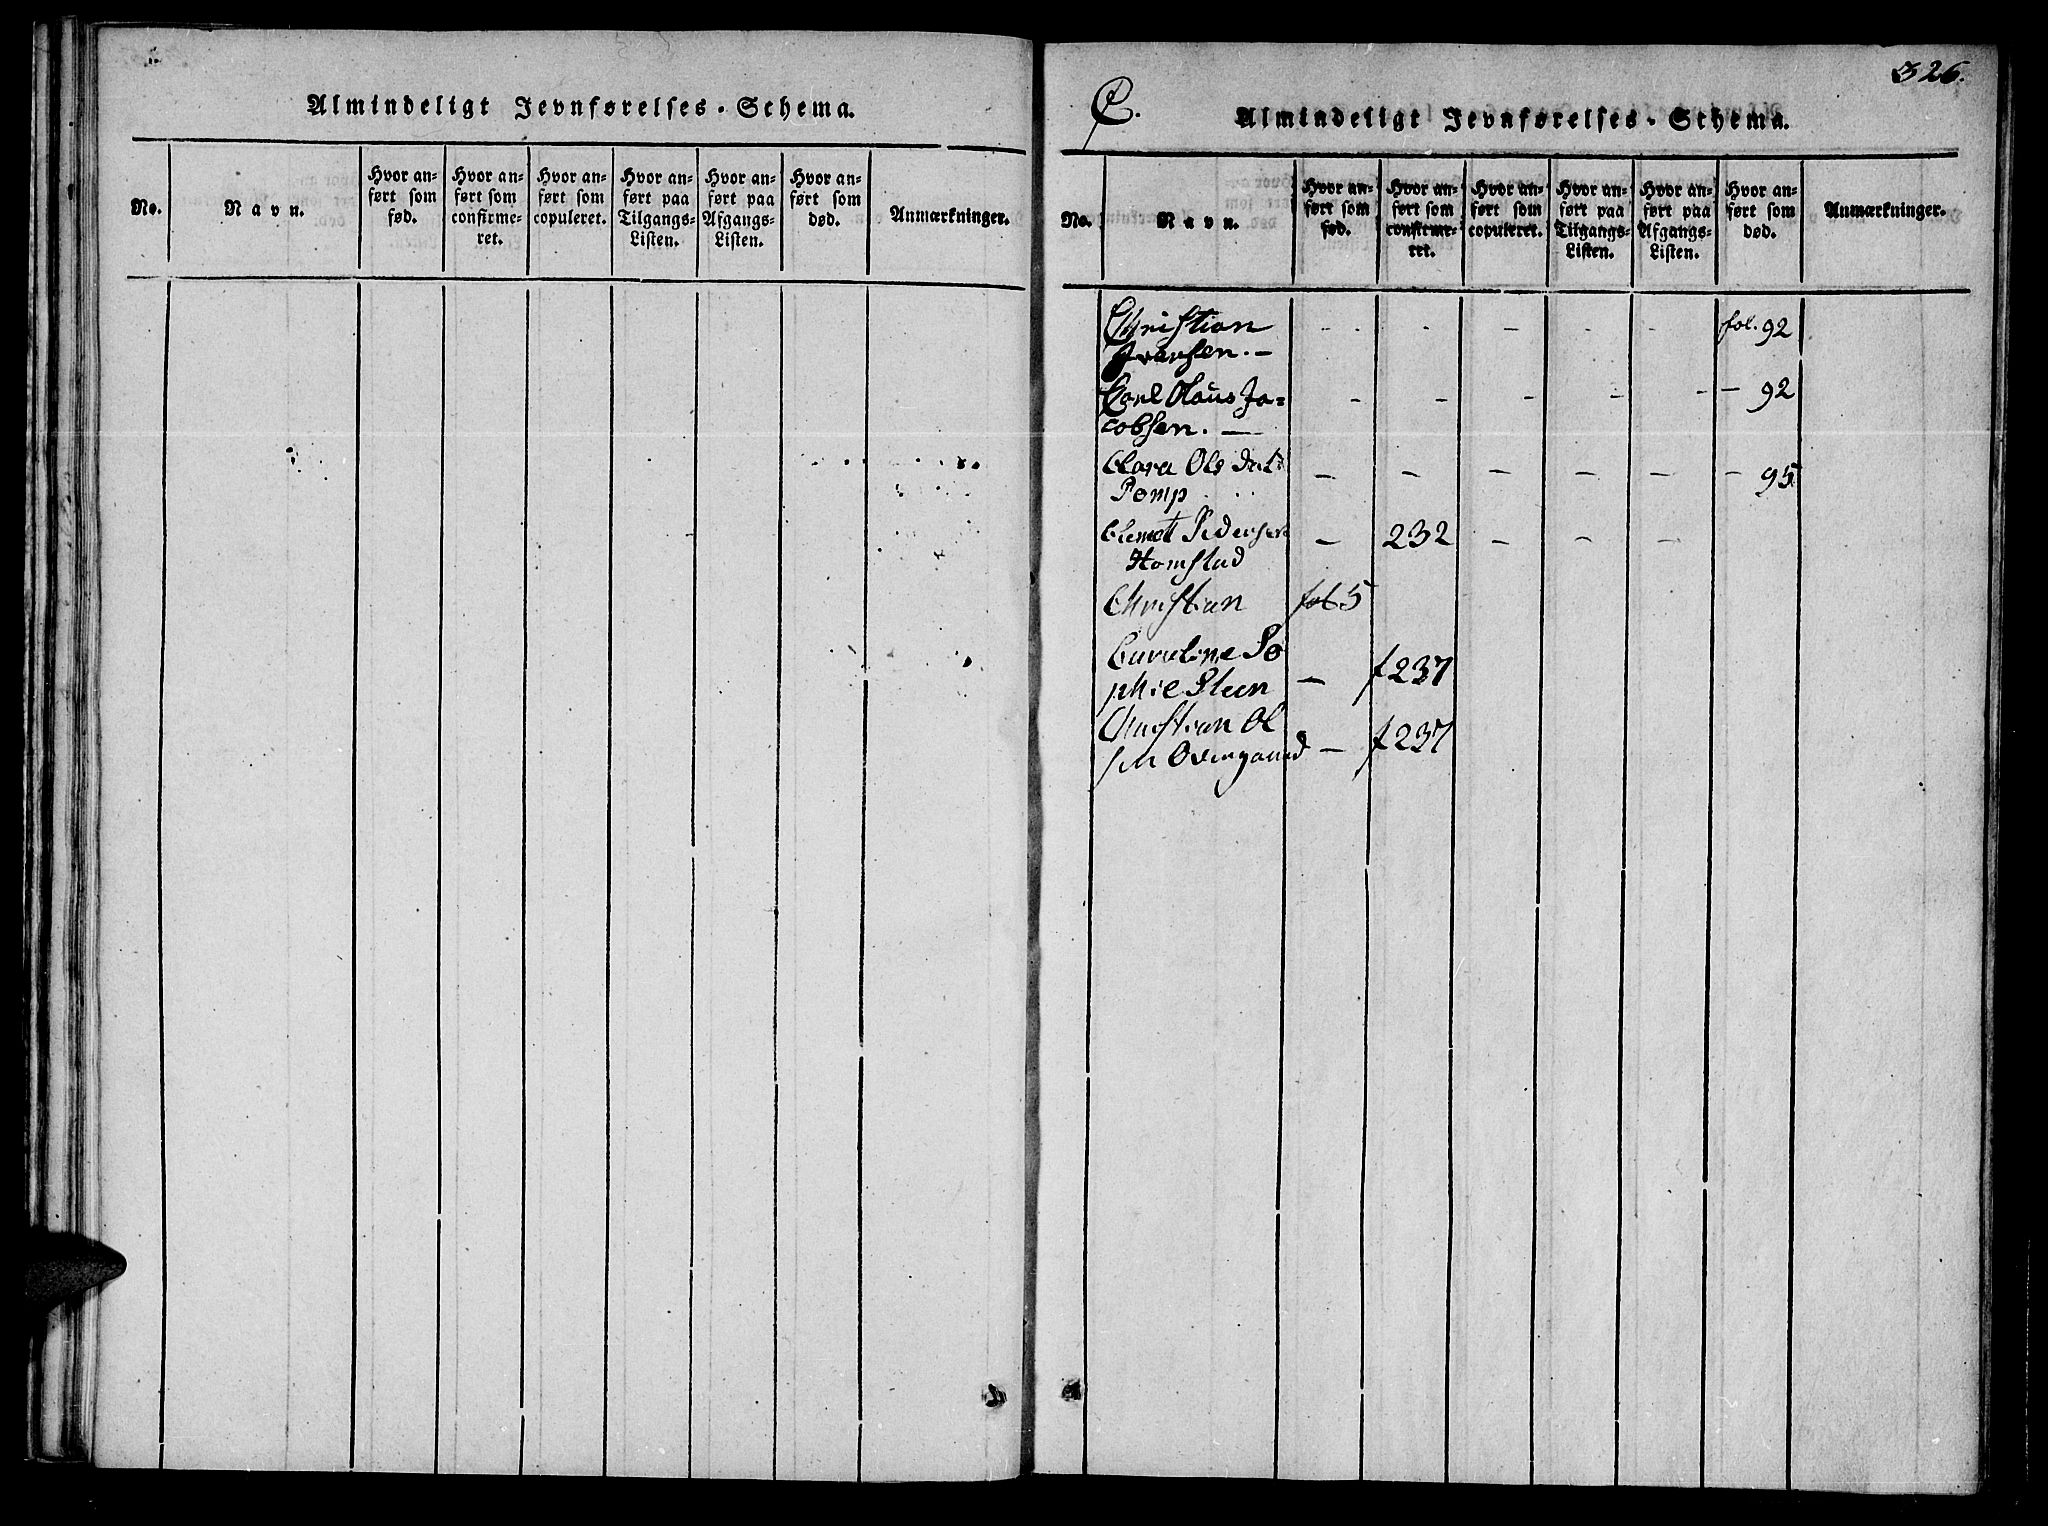 Almindeligt Jevnførelses-Schema.
No.
Navn.
Hvor an-
ført som
fød.
Hvor an-
ført som
confirme-
ret.
Hvor an-
ført som
copuleret.
Hvor an-
ført paa
Tilgangs-
Listen.
Hvor an-
ført paa
Afgangs-
Listen.
Hvor an-
ført som
død.
Anmærkninger.
326.
C.
Almindeligt Jevnførelses-Schema.
No.
Navn.
Hvor an-
ført som
fød.
Hvor an-
ført som
confirme-
ret.
Hvor an-
ført som
copuleret.
Hvor an-
ført paa
Tilgangs-
Listen.
Hvor an-
ført paa
Afgangs-
Listen.
Hvor an-
ført som
død.
Anmærkninger.
Christian - - - - - fol. 92
Iversen. -
Carl Olaus Ja= - - - - - - 92
cobsen. -
Clara Ols Dat - - - - - - 95
Pomp
Clemet Pedersen - 232 - - -
Homstad
Christian fol 5
Caroline So
phie Steen - f 237
Christian Ol
sen Overgaard - f 237